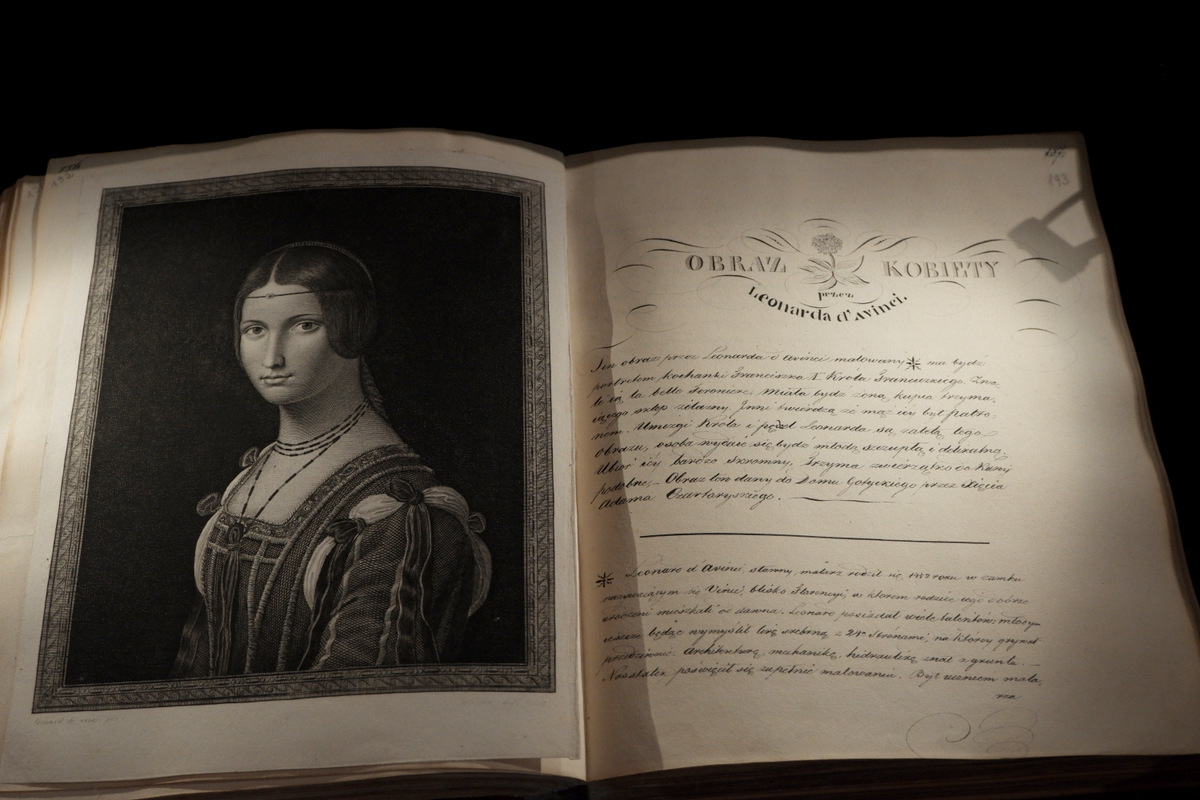 193
OBRAZ KOBIETY
przez
Leonarda d'Avinci.
Ten obraz przez Leonarda d'Avinci malowany * ma bydź
portretem kochanki Franciszka I Króla Francuzkiego. Zwa-
ła się la belle Feroniere. Miała bydź żoną kupca trzyma-
iącego sklep żelazny. Inni twierdzą że mąż iey był patro-
nem. Umizgi Króla i pędzel Leonarda są zaletą tego
obrazu, osoba wydaie się bydź młodą szczupłą i delikatną.
Ubiór iey bardzo skromny, Trzyma zwierzątko do Kuny
podobne. Obraz ten dany do Domu Gotyckiego przez Xięcia
Adama Czartoryskiego.
* Leonard d'Avinci, sławny malarz rodził się 1452 roku w zamku
nazwaiącym się Vinci blisko Florencyi, w którem rodzice iego dobrze
urodzeni mieszkali od dawna. Leonard posiadał wiele talentów; młodym
ieszcze będąc wymyślił lirę srebrną z 24ma stronami, na którey grywał
przedziwnie. Architekturę, mechanikę, hidraulikę znał z gruntu.
Nareszcie poświęcił się zupełnie malowaniu. Był uczniem mala-
rza